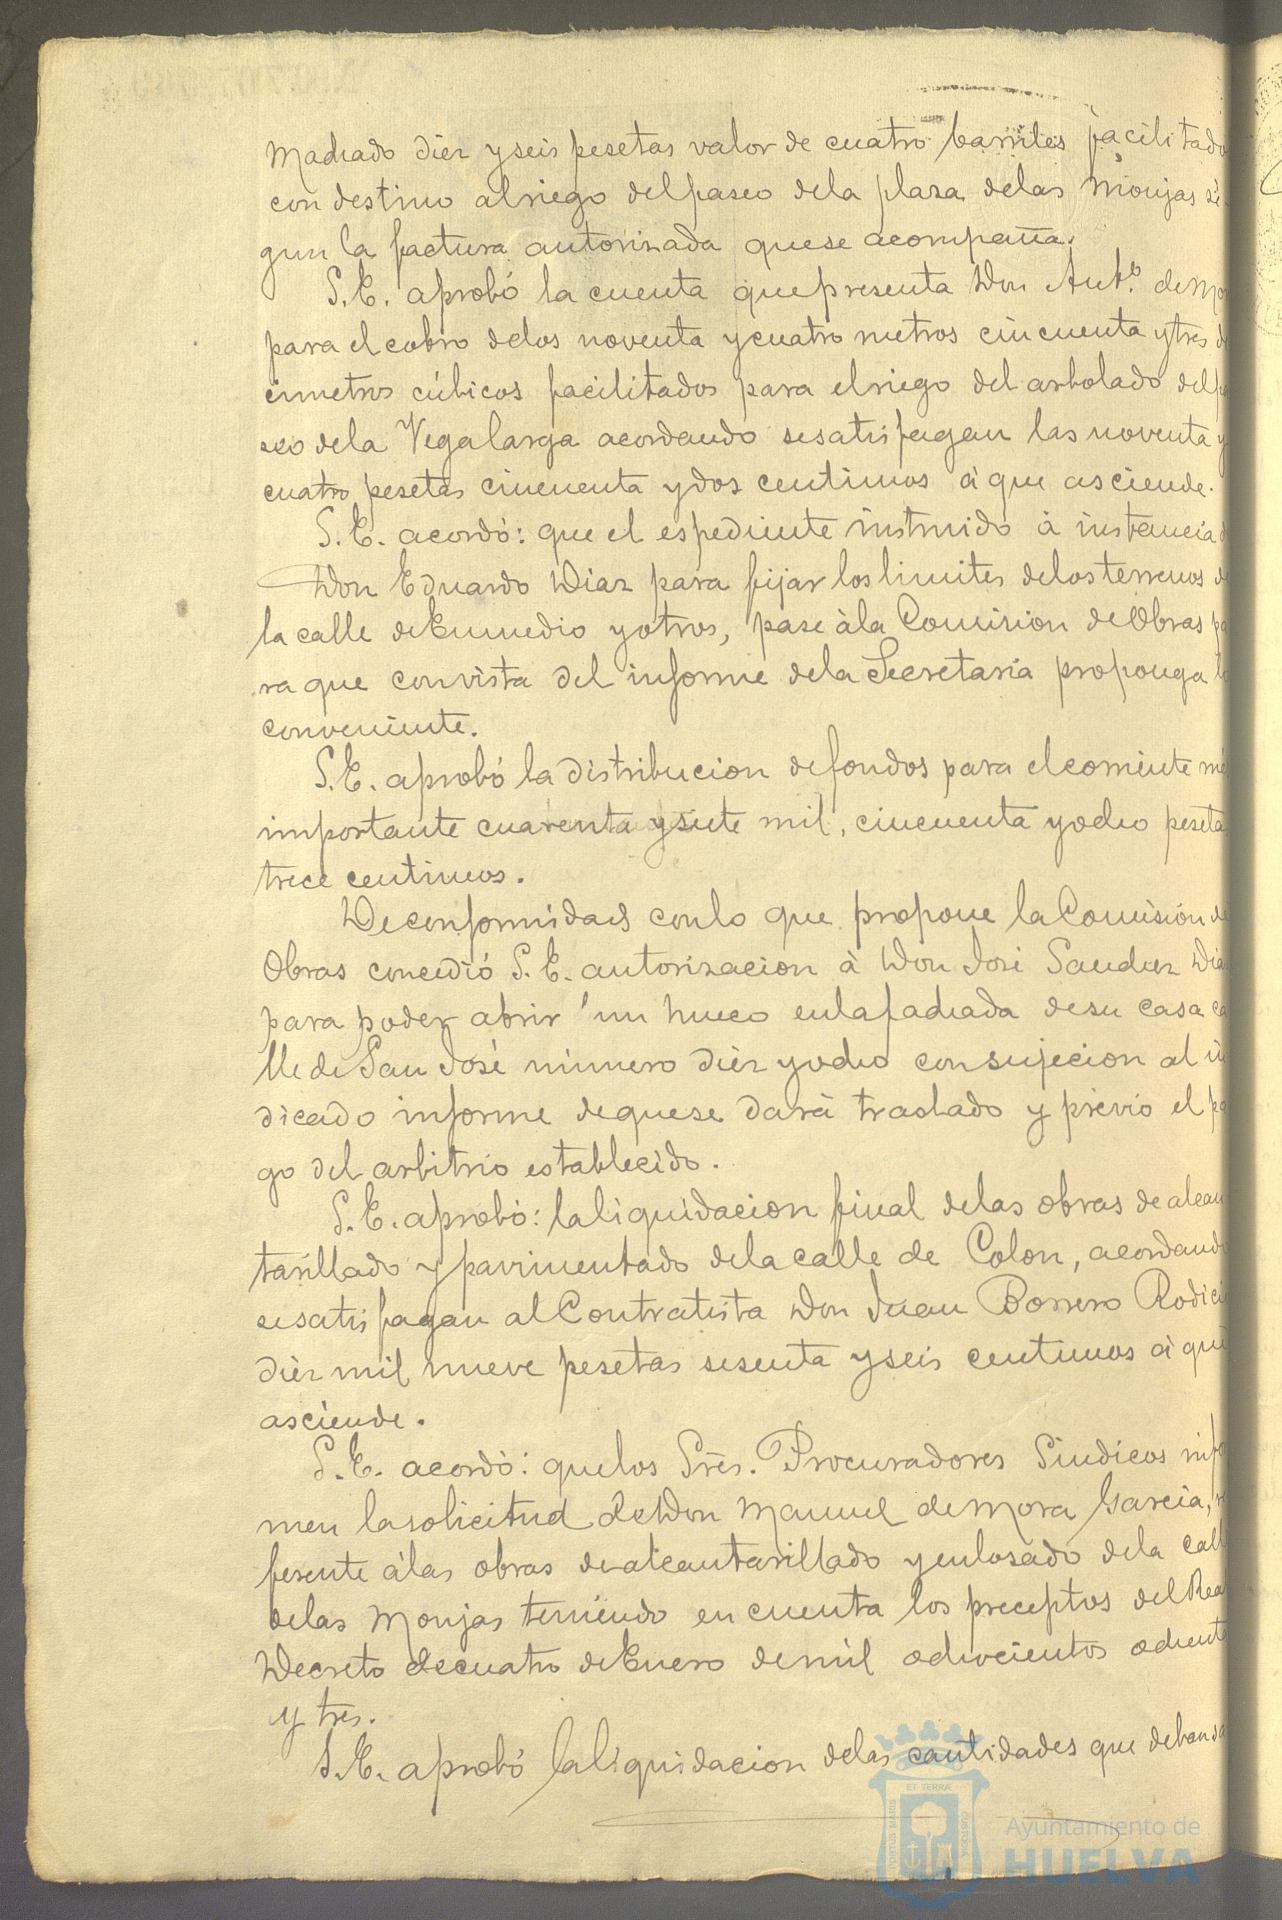 Machado diez y seis pesetas valor de cuatro barriles facilitado
con destino al riego del paseo de la plaza de las Monjas se
gun la factura autorizada que se acompaña.
S.E. aprobó la cuenta que presenta Don Antº de Mo
para el cobro de los noventa y cuatro metros cincuenta y tres d
cimetros cúbicos facilitados para el riego del arbolado del pa
seo de la Vegalarga acordando se satisfagan las noventa y
cuatro pesetas cincuenta y dos centimos à que asciende.
S.E. acordó: que el espediente instruido à instancia d
Don Eduardo Diaz para fijar los limites de los terrenos de
la calle de Enmedio y otros, pase à la Comision de Obras pa
ra que con vista del informe de la Secretaria proponga lo
conveniente.
S.E. aprobó la distribucion de fondos para el corriente me
importante cuarenta y siete mil, cincuenta y ocho peseta
trece centimos.
De conformidad con lo que propone la Comisión de
Obras concedió S.E. autorizacion à Don José Sanchez Dia
para poder abrir un hueco en la fachada de su casa ca
lle de San José número diez y ocho con sujecion al in
dicado informe de que se dará traslado y prévio el pa
go del arbitrio establecido.
S.E. aprobó: la liquidacion final de las obras de alcan
tarillado y pavimentado de la calle de Colon, acordando
se satisfagan al Contratista Don Juan Borrero Rodici
diez mil nueve pesetas sesenta y seis centimos à que
asciende.
S.E. acordó: que los Sres. Procuradores Sindicos info
men la solicitud de Don Manuel de Mora Garcia, re
ferente à las obras de alcantarillado y enlosado de la call
de las Monjas teniendo en cuenta los preceptos del Rea
Decreto de cuatro de Enero de mil ochocientos ochenta
y tres.
S.E. aprobó la liquidacion de las cantidades que deben sa
ET TERRÆ
PORTUS MARIS
CUSTODIA
Ayuntamiento de
HUELVA